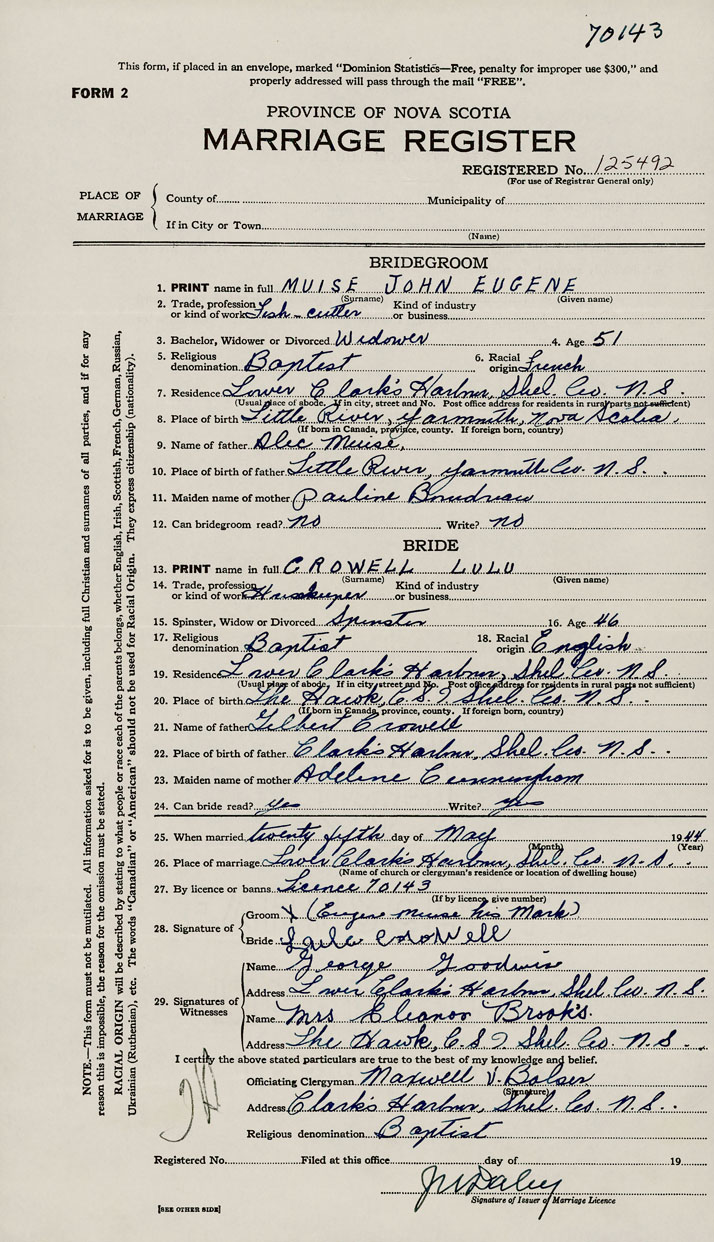 70143
This form, if placed in an envelope, marked "Dominion Statistics—Free, penalty for improper use $300," and
properly addressed will pass through the mail "FREE".
FORM 2
PROVINCE OF NOVA SCOTIA
MARRIAGE REGISTER
REGISTERED No. 125492
(For use of Registrar General only)
PLACE OF MARRIAGE
County of Municipality of
If in City or Town
(Name)
BRIDEGROOM
1. PRINT name in full MUISE JOHN EUGENE
(Surname) (Given name)
2. Trade, profession or kind of work Fish-cutter Kind of industry or business
3. Bachelor, Widower or Divorced Widower 4. Age 51
5. Religious denomination Baptist 6. Racial origin French
7. Residence Lower Clark's Harbor, Shel. Co. N.S.
(Usual place of abode. If in city, street and No. Post office address for residents in rural parts not sufficient)
8. Place of birth Little River, Yarmouth, Nova Scotia.
(If born in Canada, province, county. If foreign born, country)
9. Name of father Alec Muise,
10. Place of birth of father Little River, Yarmouth Co. N.S.
11. Maiden name of mother Pauline Boudreau
12. Can bridegroom read? no Write? no
BRIDE
13. PRINT name in full CROWELL LULU
(Surname) (Given name)
14. Trade, profession or kind of work Kind of industry or business
15. Spinster, Widow or Divorced Spinster 16. Age 46
17. Religious denomination Baptist 18. Racial origin English
19. Residence Lower Clark's Harbor, Shel. Co. N.S.
(Usual place of abode. If in city, street and No. Post office address for residents in rural parts not sufficient)
20. Place of birth The Hawk, C.S.I. Shel. Co. N.S.
(If born in Canada, province, county. If foreign born, country)
21. Name of father Gilbert Crowell
22. Place of birth of father Clark's Harbor, Shel. Co. N.S.
23. Maiden name of mother Adeline Cunningham
24. Can bride read? yes Write? yes
25. When married twenty fifth day of May 1944
(Month) (Year)
26. Place of marriage Lower Clark's Harbor, Shel. Co. N.S.
(Name of church or clergyman's residence or location of dwelling house)
27. By licence or banns Licence 70143
(If by licence, give number)
28. Signature of
Groom X (Eugene Muise his Mark)
Bride Lulu Crowell
29. Signatures of Witnesses
Name George Goodwin
Address Lower Clark's Harbor, Shel. Co. N.S.
Name Mrs Eleanor Brook's.
Address The Hawk, C.S.I. Shel. Co. N.S.
I certify the above stated particulars are true to the best of my knowledge and belief.
Officiating Clergyman Maxwell V. Bolser
(Signature)
Address Clark's Harbor, Shel. Co. N.S.
Religious denomination Baptist
Registered No. Filed at this office day of 19
Signature of Issuer of Marriage Licence
[SEE OTHER SIDE]
NOTE.—This form must not be mutilated. All information asked for is to be given, including full Christian and surnames of all parties, and if for any
reason this is impossible, the reason for the omission must be stated.
RACIAL ORIGIN will be described by stating to what people or race each of the parents belongs, whether English, Irish, Scottish, French, German, Russian,
Ukrainian (Ruthenian), etc. The words "Canadian" or "American" should not be used for Racial Origin. They express citizenship (nationality).